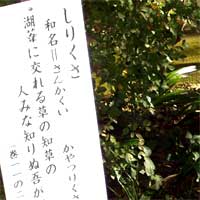 しりくさ
和名=さんかくい
かやつりくさ
湖葦に交れる草の知草の
人みな知りぬ吾が
(巻一一の二